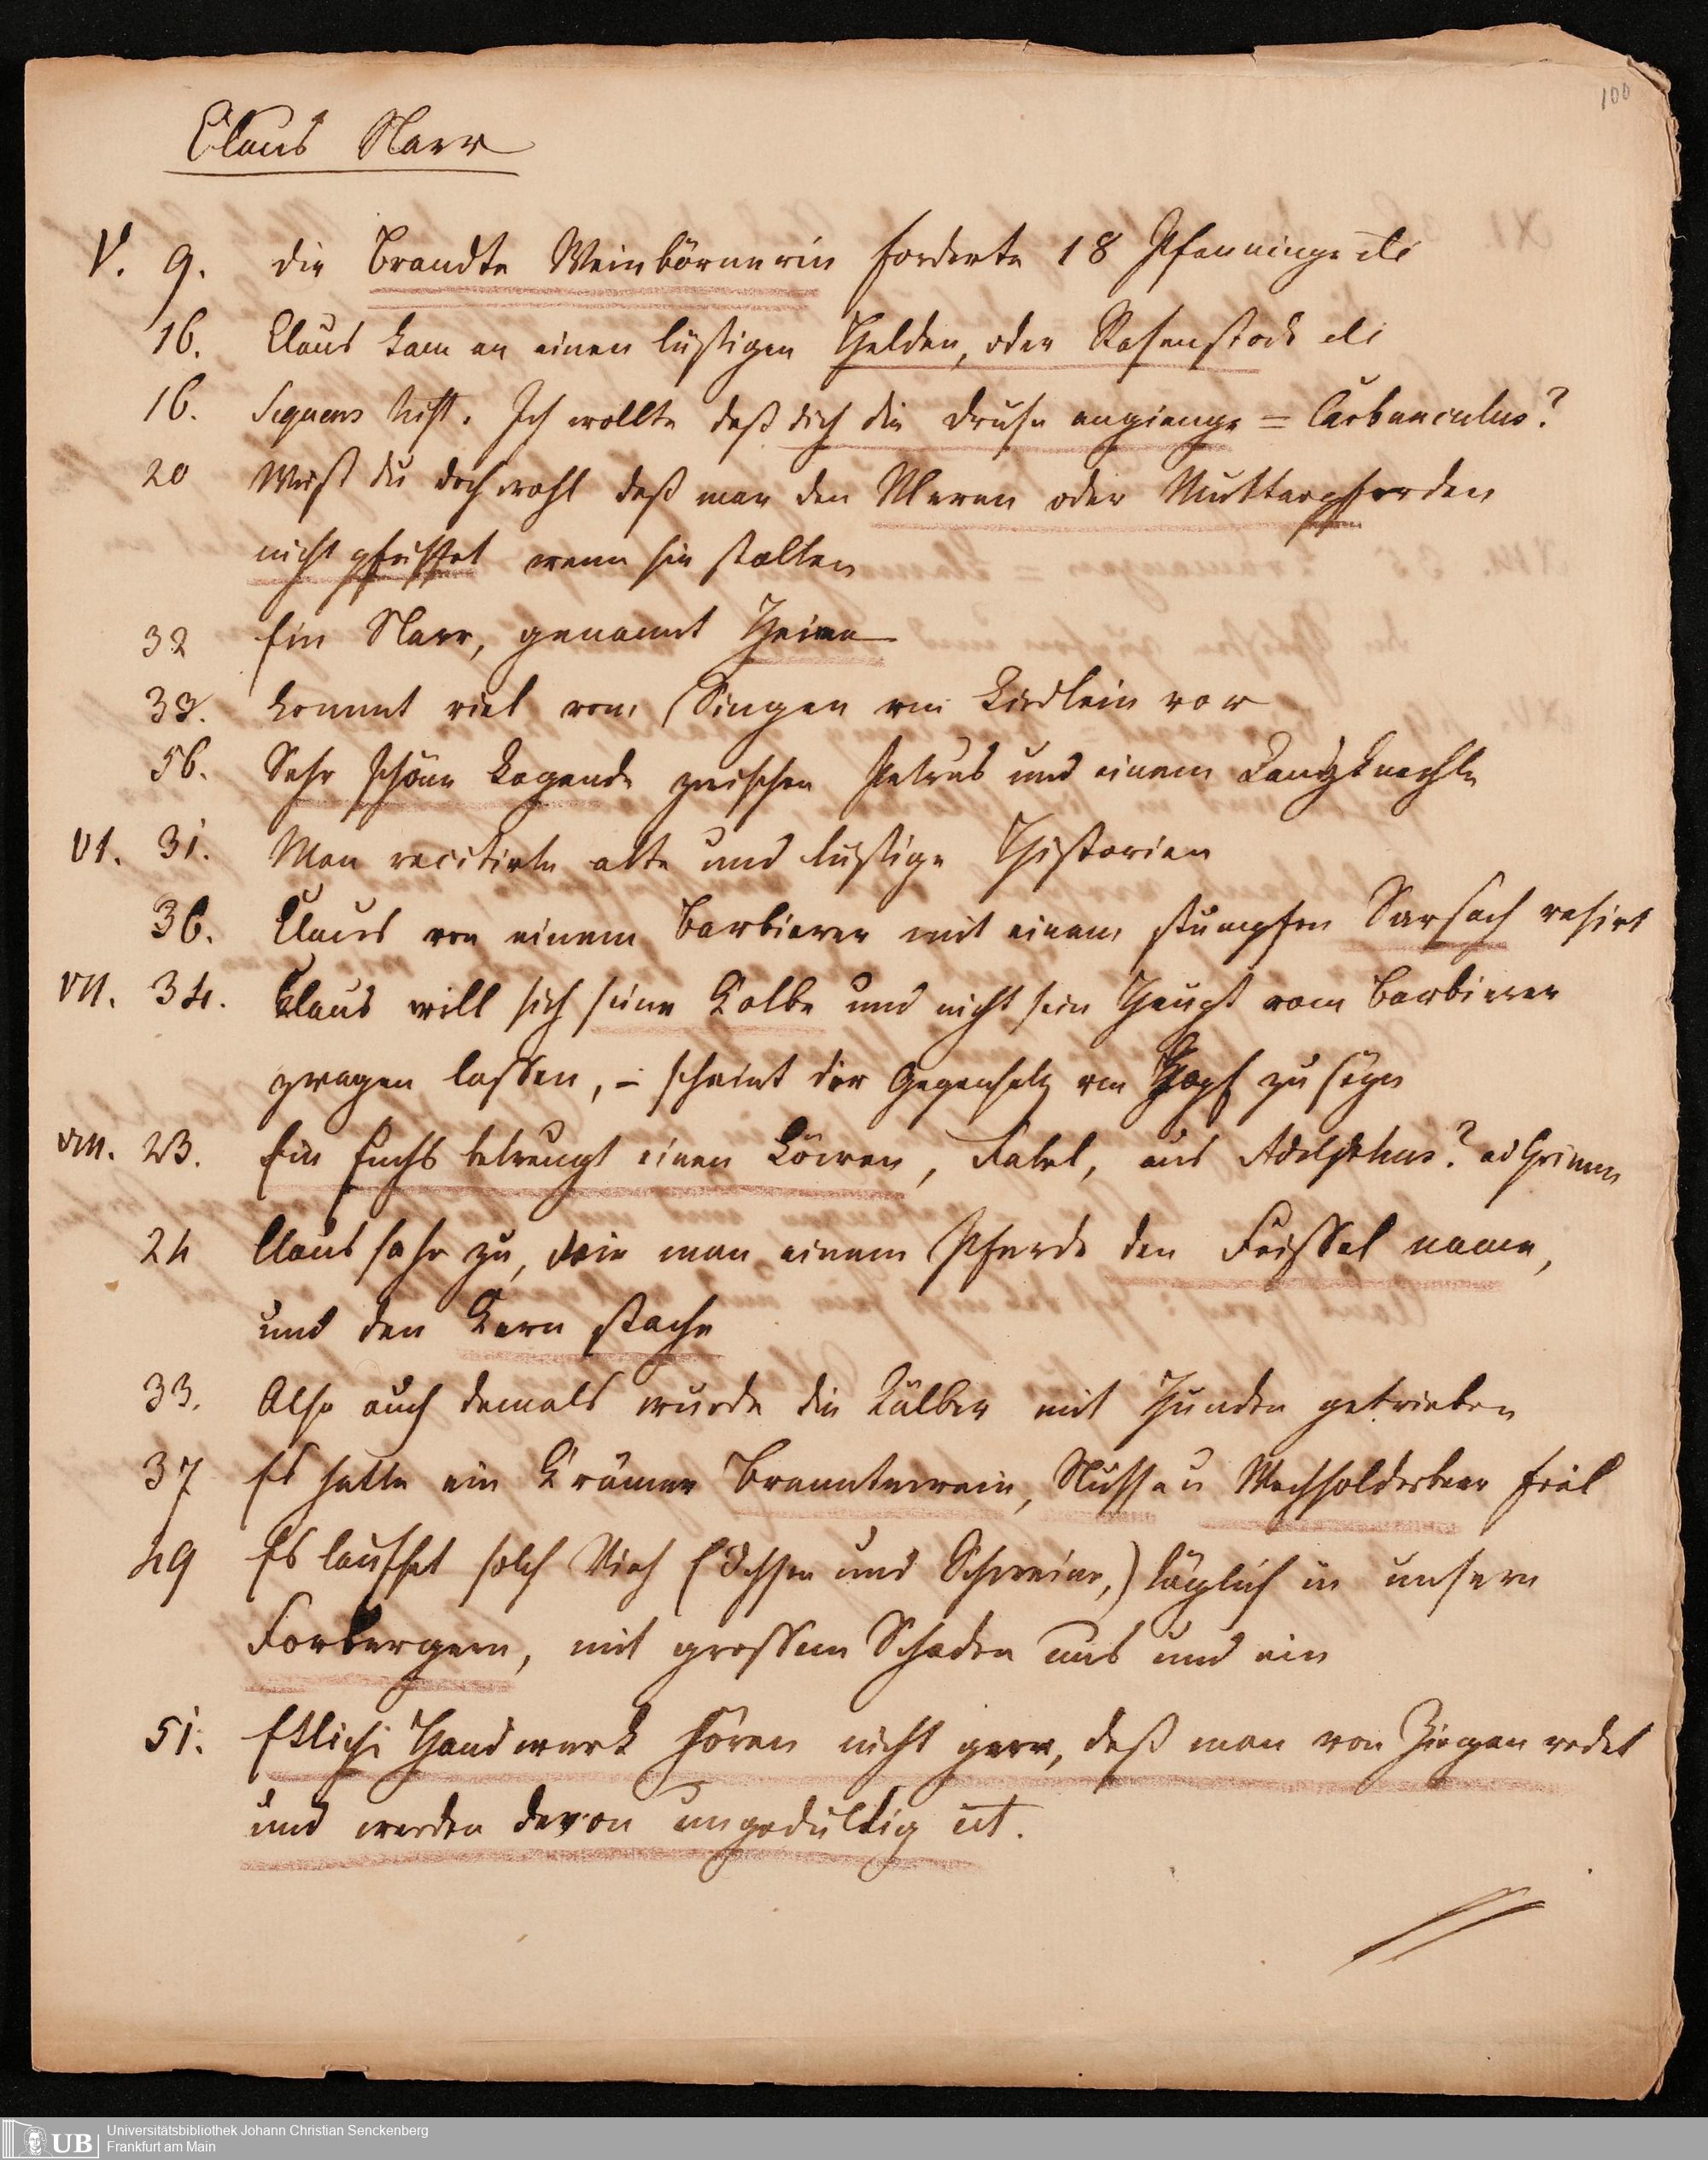 100
Claus Narr
V. 9. die Brandte Weinbörnerin forderte 18 Pfenninge etc
16. Claus kam an einen lustigen Helden, oder Rosenstock etc
16. Sequens hist. Ich wollte daß dich die Druse angienge = Carbunculus?
20 Weist du doch wohl daß man den Meren oder Mutterpferden
nicht pfeiffet wenn sie stallen
32 Ein Narr, genannt Heine
33. kommt viel vom Singen von Liedlein vor
56. Sehr schöne Legende zwischen Petrus und einem Landzknechte
VI. 31. Man recitirte alte und lustige Historien
36. Claus von einem Barbierer mit einem stumpfen Sarsach rasirt
VII. 34. Claus will sich seine Kolbe und nicht sein Haupt vom Barbierer
zwagen lassen, – scheint der Gegensatz von Zopf zu seyn
VIII. 23. Ein Fuchs betreugt einen Löwen, Fabel, aus Adelphus? ad Grimm
24 Claus sahe zu, wie man einem Pferde den Feissel name,
und den Kern stache
33. Also auch damals wurde die Kälber mit Hunden getrieben
37 Es hatte ein Krämer Branntewein, Nüsse u Wachholderbeer feil
49 Es lauffet solch Vieh (Ochsen und Schweine,) täglich in unsern
Forbergern, mit grossem Schaden aus und ein
51. Etliche Handwerk hören nicht gern, daß man von Ziegen redet
und werden davon ungeduldig etc.
UB
Universitätsbibliothek Johann Christian Senckenberg
Frankfurt am Main